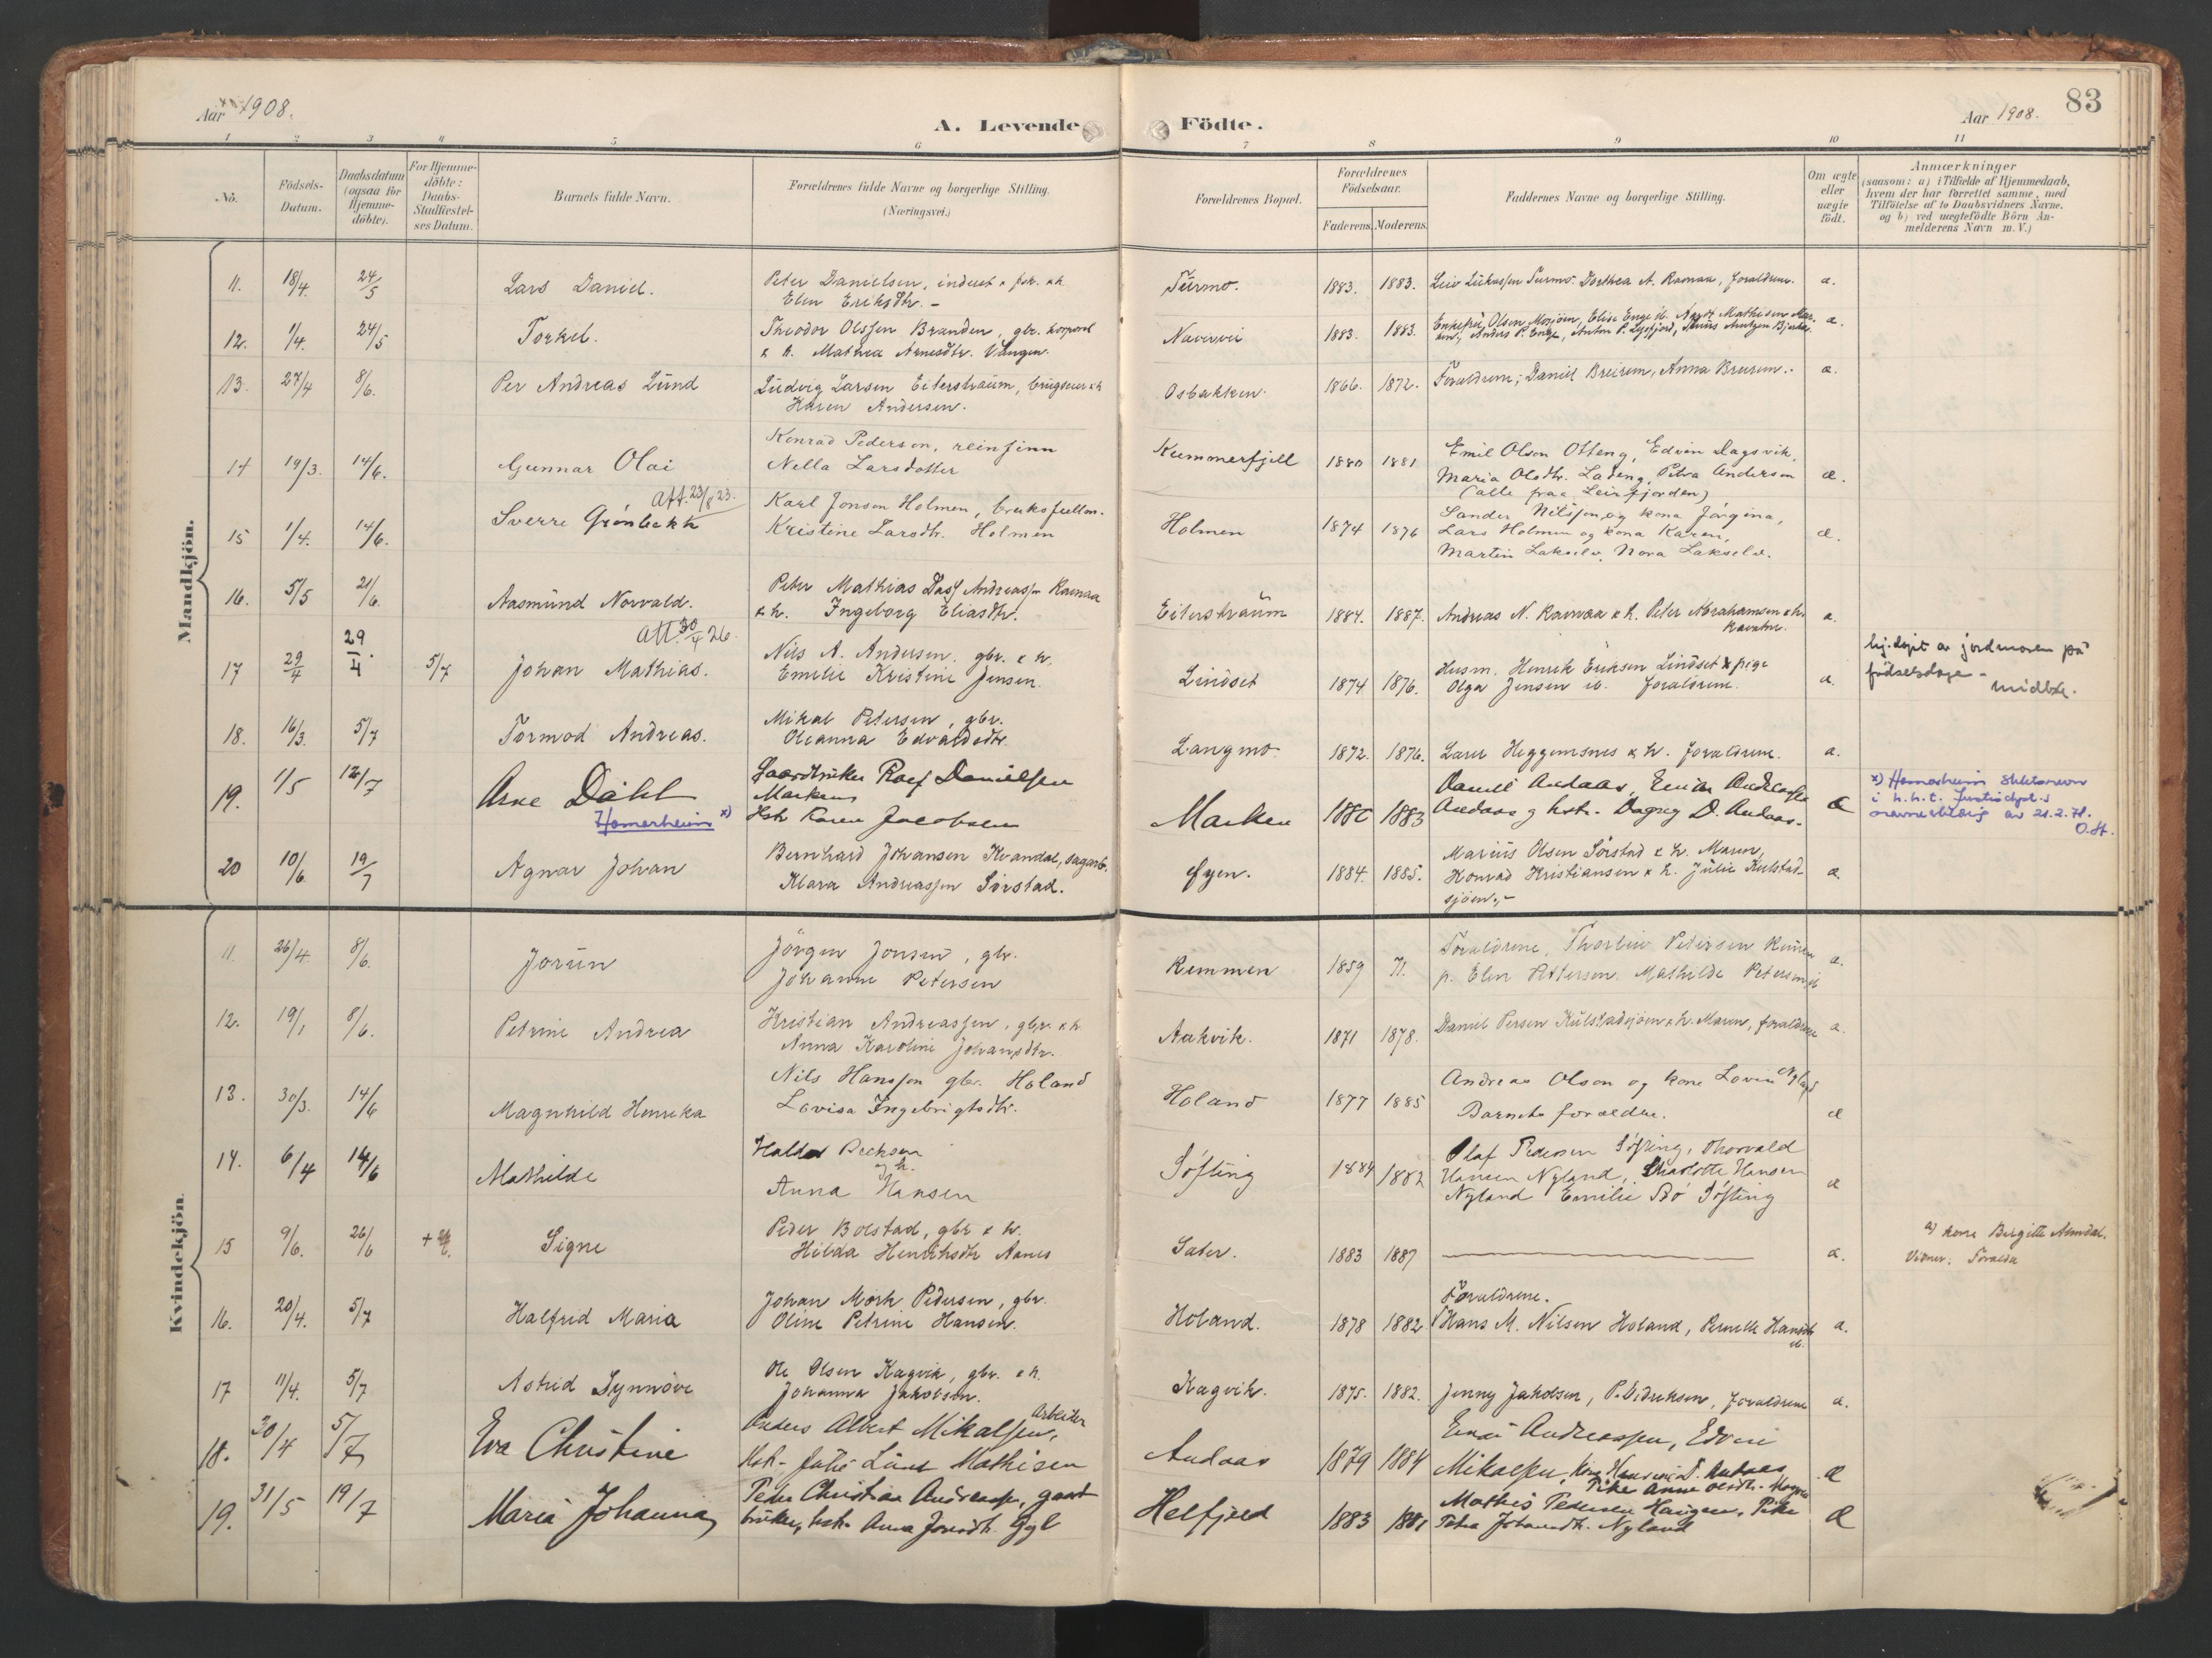 Aar 1908.
A. Levende Födte.
Aar 1908.
83
1 2 3 4 5 6 7 8 9 10 11
No.
Födsels-
Datum.
Daabsdatum
(ogsaa for
Hjemme-
döbte).
For Hjemme-
döbte:
Daabs-
Stadfæstel-
ses Datum.
Barnets fulde Navn.
Forældrenes fulde Navne og borgerlige Stilling.
(Næringsvei.)
Forældrenes Bopæl.
Forældrenes
Födselsaar.
Faderens. Moderens.
Faddernes Navne og borgerlige Stilling.
Om ægte
eller
uægte
födt.
Anmærkninger
(saasom: a) i Tilfælde af Hjemmedaab,
hvem der har forrettet samme, med
Tilföielse af to Daabsvidners Navne,
og b) ved uægtefödte Börn An-
melderens Navn m. V.)
Mandkjön.
11. 18/4. 24/5 Lars Daniel.
Peter Danielsen, inderst
Elen Eriksdtr. -
Turmo. 1883. 1883. Leiv Lukassen Turmo. Dorthea A. Ramaa, forældrene. æ.
12. 1/4. 24/5 Torkel.
Theodor Olssen Branden, gbr. korporal
& h. Mathea Arnesdtr. Vangen.
1883. 1883. Enkefru Olsen Mosjöen, Elise Enge
Anders P. Enge, Anton P. æ.
13. 27/4 8/6. Per Andreas Lund
Ludvig Larsen Eiterstraum, brugseier & h
Karen Andersen.
Osbakken. 1866. 1872. Forældrene; Daniel Breirem, Anna Breirem. æ.
14 19/3. 14/6. Gunnar Olai
Konrad Pederson, reinfinn
Nella Larsdotter
Kummerfjell 1880 1881
Emil Olson Otteng, Edvin Dagsvik,
Maria Olsdtr. Ladeng, Petra Anderson
(alle fraa Leirfjorden) æ.
15 1/4. 14/6. Sverre Grønbekk
Att. 23/8 23.
Karl Jonson Holmen, bruksfullm.
Kristine Larsdtr. Holmen
Holmen 1874 1876
Sander Nilssen og kona Jörgina,
Lars Holmen og kona Karen,
Martin Lakselv, Nora Lakselv. æ.
16. 5/5 21/6. Aasmund Norvald.
Peter Mathias Dass Andreassen Ramaa
& h. Ingeborg Eliasdtr.
Eiterstraum 1884. 1887. Andreas N. Ramaa & h. Peter Abrahamsen & h.
æ.
17 29/4 29/4. 5/7 Johan Mathias.
Att. 30/4 26.
Nils A. Andersen, gbr. & h.
Emelie Kristine Jensen.
Lindset 1874 1876.
Husm. Henrik Eriksen Lindset & pige
Olga Jensen ib. forældrene. æ.
hj.døpt av jordmoren på
fødselsdagen -
18. 16/3. 5/7 Tormod Andreas.
Mikal Petersen, gbr.
Oleanna Edvardsdtr.
Langmo 1872. 1876. Lars Heggemsnes & h. forældrene. æ.
19. 1/5 12/7 Arne Dahl
Hamarheim x)
Gaardbruker Rolf Danielsen
Marken
Hstr Karen Jacobsen
Marken 1880 1883
Daniel Andaas, Einar Andreassen
Andaas og hstr. Dagny D. Andaas. æ
x) Hamarheim slektsnavn
i h.h.t. Justisdept.s
navnebevilling av 21.2.71.
O.H.
20 10/6. 19/7 Agnar Johan
Bernhard Johansen Kvandal, sagarb.
Klara Andreassen Sörstad.
Øyen. 1884. 1885.
Marius Olsen Sörstad & h. Maren,
Konrad Kristiansen & h. Julie Kulstad-
sjöen. - æ.
Kvindekjön.
11. 26/4. 8/6. Jorun
Jörgen Jonsen, gbr.
Johanne Petersen
Remmen 1859 71.
Forældrene, Thorleiv Petersen Remmen
p. Elen Pettersen. Mathilde Petersen ib æ.
12. 19/1 8/6. Petrine Andrea
Kristian Andreassen, gbr. & h
Anna Karoline Johansdtr.
Aakvik. 1871 1878. Daniel Persen Kulstadsjöen & h. Maren, forældrene æ.
13. 30/3. 14/6 Magnhild Henrika
Nils Hanssen gbr. Holand
Lovisa Ingebrigtsdtr.
Holand 1877 1885
Andreas Olson og kone Lovise Nyland
Barnets forældre. æ
14. 6/4 14/6 Mathilde
Haldor
og h.
Anna Hansen
Söfting 1884 1882
Olaf Pedersen Söfting, Thorvald
Hansen Nyland, Charlotte Hansen
Nyland Emilie Bö Söfting æ
15 9/6. 26/6 Signe
Peder Bolstad, gbr & h.
Hilda Henriksdtr Aanes
Sæter. 1883 1887 æ.
a) kone Birgitte Almdal.
Vidner: Foræld.
16. 20/4. 5/7 Halfrid Maria
Johan Mörk Pedersen, gbr.
Oline Petrine Hansen.
Holand. 1878 1882
Forældrene.
Hans M. Nilsen Holand, Pernelle Hansdtr
ib. æ.
17 11/4. 5/7 Astrid Synnöve
Ole Olsen Kagvik, gbr. & h.
Johanna Jakobsen.
Kagvik. 1875. 1882. Jenny Jakobsen, P. Didriksen, forældrene æ.
18. 30/4 5/7 Eva Christine
Anders Albert Mikalsen, Arbeider
Hstr. Julie Mathisen
Andaas 1879 1884
Einar Andreassen, Edvin
Mikalsen, D. Andaas
Pike Anna Olsdtr. æ
19. 31/5 19/7 Maria Johanna
Peder Christian Andreass., gaard
bruker, hstr. Anna Jonsdtr.
Helfjeld 1883 1881
Mathis Pedersen Haugen, Pike
Petra Johansdtr. Nyland æ